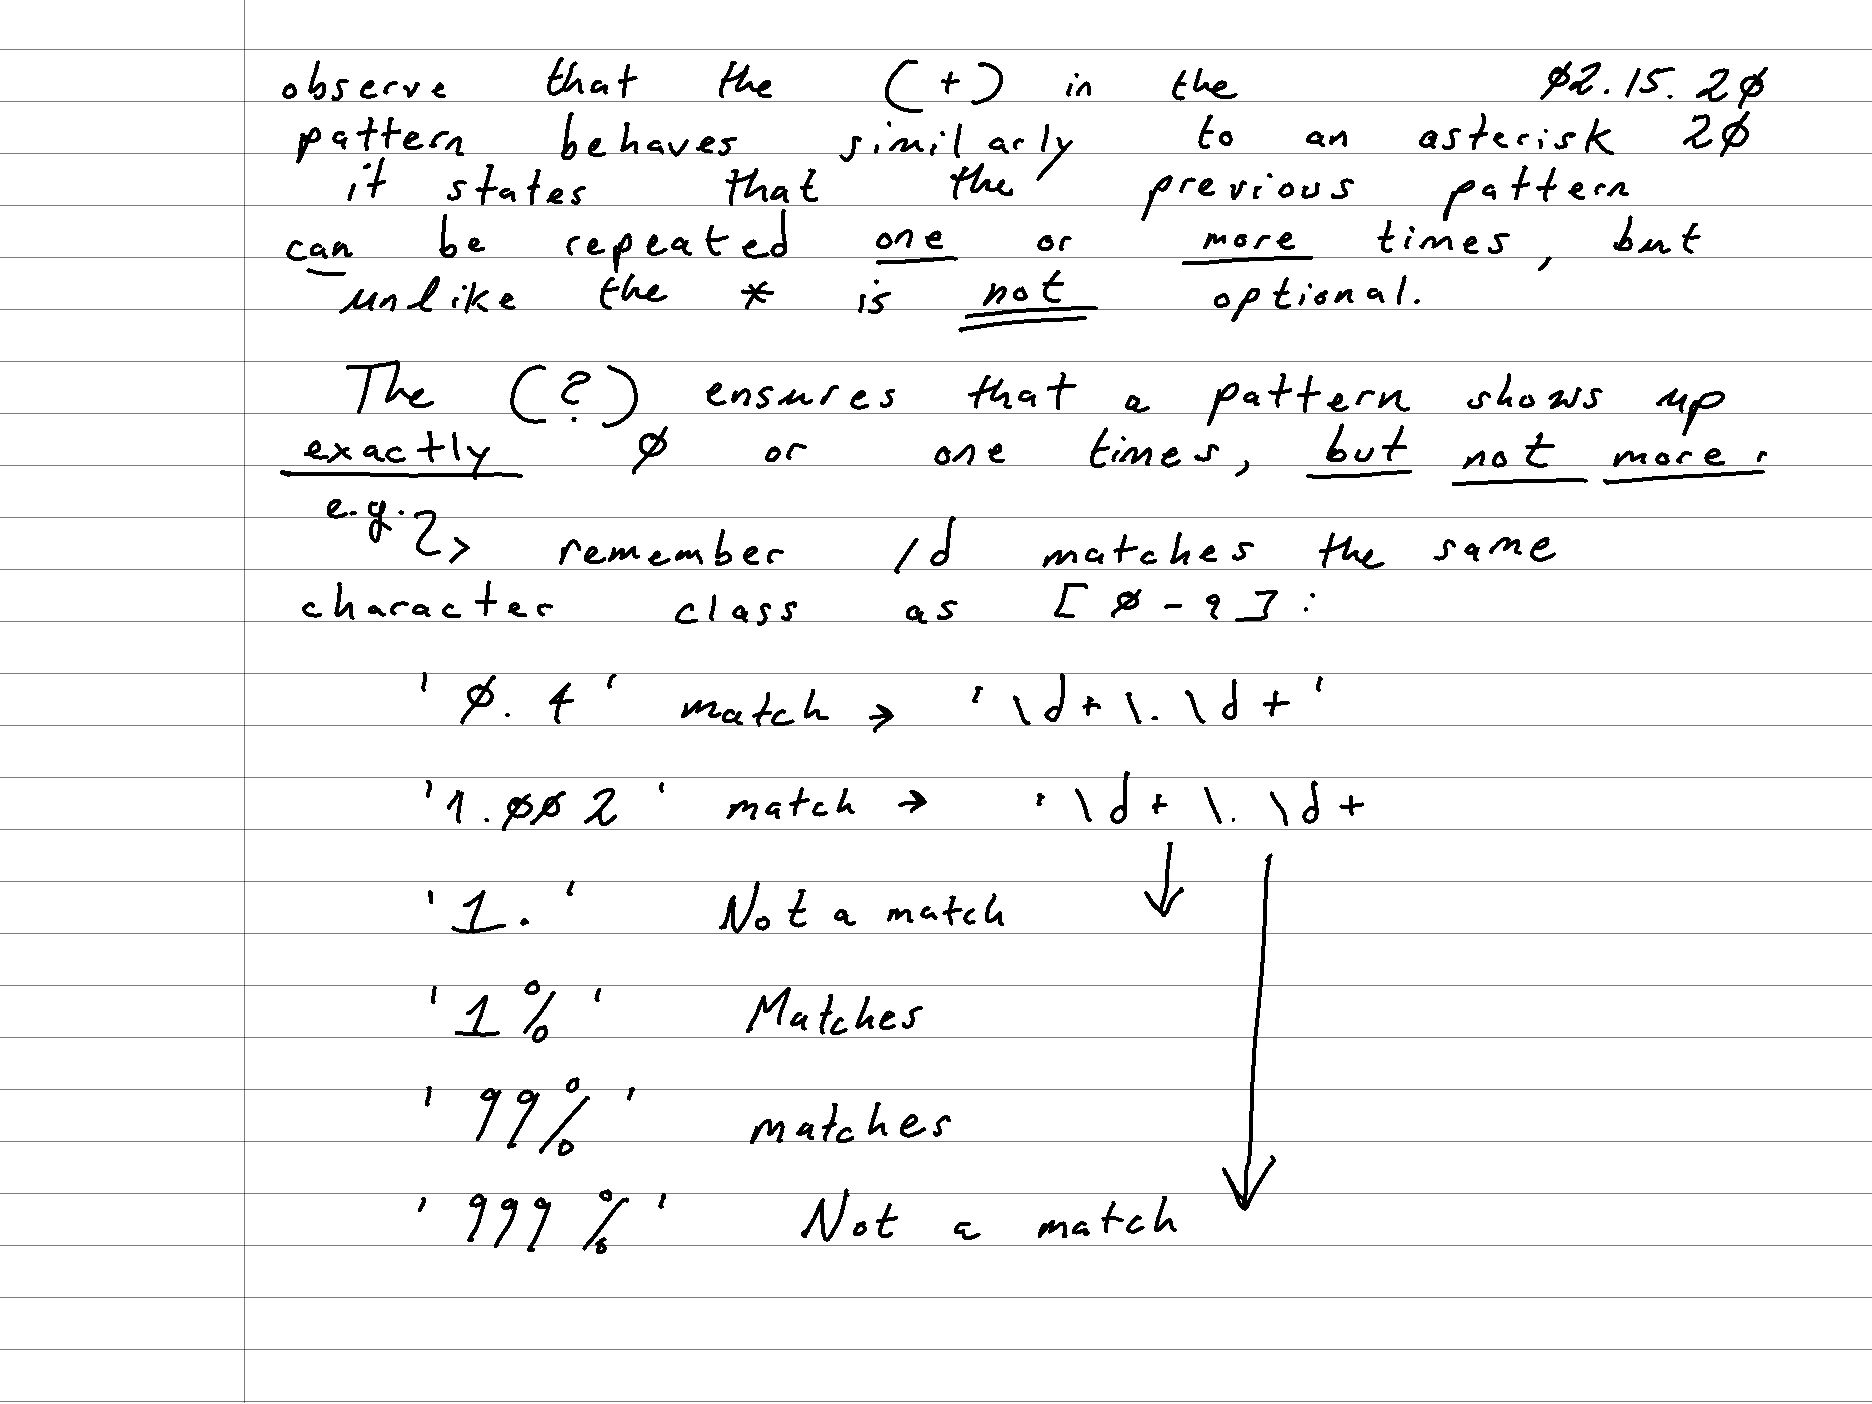 observe that the (+) in the ø2.15.2ø
pattern behaves similarly to an asterisk 2ø
it states that the previous pattern
can be repeated one or more times, but
unlike the * is not optional.
The (?) ensures that a pattern shows up
exactly ø or one times, but not more.
e.g. remember /d matches the same
character class as [ø-9]:
'ø.4' match → '\d+\.\d+'
'1.øø2' match → '\d+\.\d+
'1.' Not a match
'1%' Matches
'99%' matches
'999%' Not a match